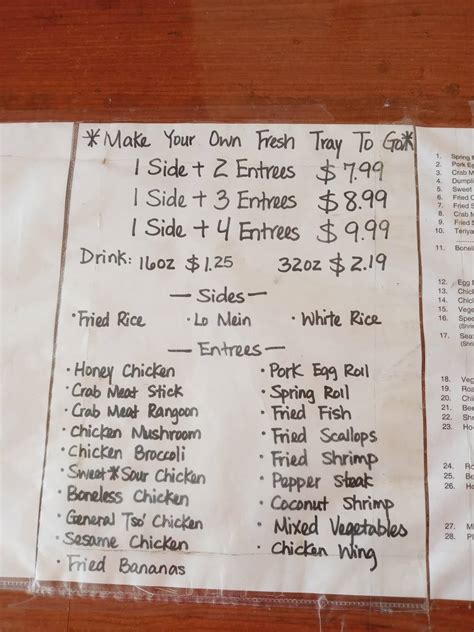 *Make Your Own Fresh Tray To Go*
1 Side + 2 Entrees $7.99
1 Side + 3 Entrees $8.99
1 Side + 4 Entrees $9.99
Drink: 16oz $1.25 32oz $2.19
— Sides —
• Fried Rice • Lo Mein • White Rice
— Entrees —
• Honey Chicken
• Crab Meat Stick
• Crab Meat Rangoon
• Chicken Mushroom
• Chicken Broccoli
• Sweet * Sour Chicken
• Boneless Chicken
• General Tso' Chicken
• Sesame Chicken
• Fried Bananas
• Pork Egg Roll
• Spring Roll
• Fried Fish
• Fried Scallops
• Fried Shrimp
• Papper Steak
• Coconut Shrimp
• Mixed Vegetables
• Chicken Wing
1. Spring
2. Pork Eg
3. Crab M
4. Dumpli
5. Sweet
6. Fried C
7. Fried S
8. Crab M
9. Fried S
10. Teriya
11. Boneli
12. Egg
13. Chic
14. Chic
15. Vege
16. Spec
17. Sea
18. Veg
19. Roa
20. Chi
21. Bee
22. Shr
23. Ho
24. Ro
25. Be
26. Ha
27. M
28. Pl